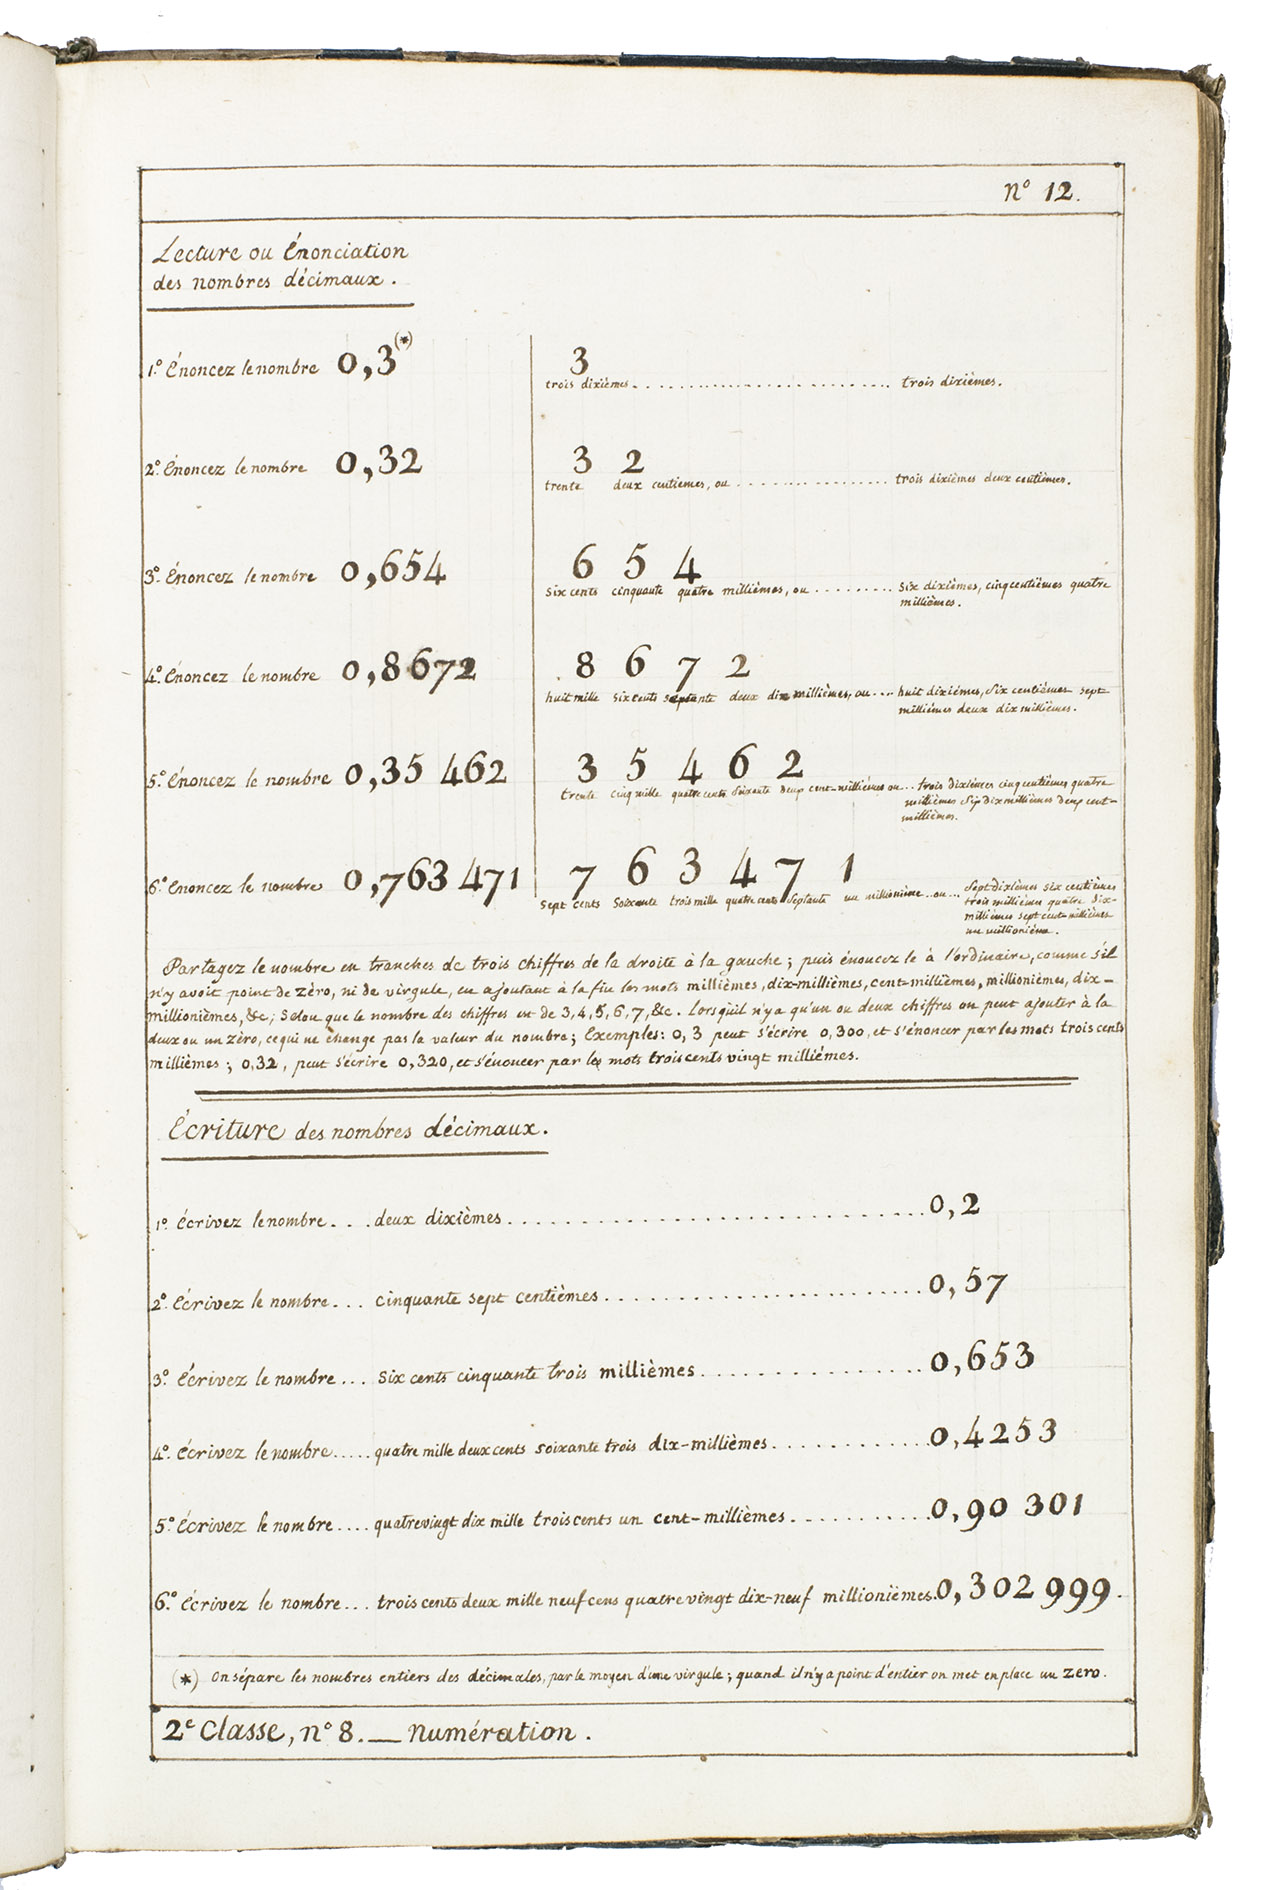 N° 12.
Lecture ou Énonciation
des nombres décimaux.
1.° Énoncez le nombre 0,3(*) 3
trois dixièmes........ trois dixièmes.
2.° Énoncez le nombre 0,32 3 2
trente deux centièmes, ou........ trois dixièmes deux centièmes.
3.° Énoncez le nombre 0,654 6 5 4
six cents cinquante quatre millièmes, ou........ six dixièmes, cinq centièmes quatre
millièmes.
4.° Énoncez le nombre 0,8672 8 6 7 2
huit mille six cents septante deux dix millièmes, ou.... huit dixiémes, six centièmes sept
millièmes deux dix millièmes.
5.° Énoncez le nombre 0,35 462 3 5 4 6 2
trente cinq mille quatre cents soixante deux cent-millièmes ou.. trois dixièmes cinq centièmes quatre
millièmes six dix millièmes deux cent-
millièmes.
6.° Enoncez le nombre 0,763 471 7 6 3 4 7 1
sept cents soixante trois mille quatre cents septante un millionième..ou... sept dixièmes six centièmes
trois millièmes quatre dix-
millièmes sept cent-millièmes
un millionième.
Partagez le nombre en tranches de trois chiffres de la droite à la gauche; puis énoncez le à l'ordinaire, comme s'il
n'y avoit point de zèro, ni de virgule, en ajoutant à la fin les mots millièmes, dix-millièmes, cent-millièmes, millionièmes, dix-
millionièmes, &c; Selon que le nombre des chiffres est de 3, 4, 5, 6, 7, &c. Lorsqu'il n'y a qu'un ou deux chiffres on peut ajouter à la
deux ou un zèro, ce qui ne change pas la valeur du nombre; Exemples: 0,3 peut s'écrire 0,300, et s'énoncer par les mots trois cents
millièmes; 0,32, peut s'écrire 0,320, et s'énoncer par les mots trois cents vingt millièmes.
Écriture des nombres décimaux.
1.° Écrivez le nombre... deux dixièmes........ 0,2
2.° Écrivez le nombre... cinquante sept centièmes........ 0,57
3.° Écrivez le nombre... six cents cinquante trois millièmes........ 0,653
4.° Écrivez le nombre..... quatre mille deux cents soixante trois dix-millièmes........ 0,4253
5.° Écrivez le nombre.... quatrevingt dix mille trois cents un cent-millièmes........ 0,90 301
6.° Écrivez le nombre... trois cents deux mille neuf cens quatre vingt dix-neuf millionièmes.0,302 999.
(*) On sépare les nombres entiers des décimales, par le moyen d'une virgule; quand il n'y a point d'entier on met en place un zero.
2e Classe, n° 8. — Numération.